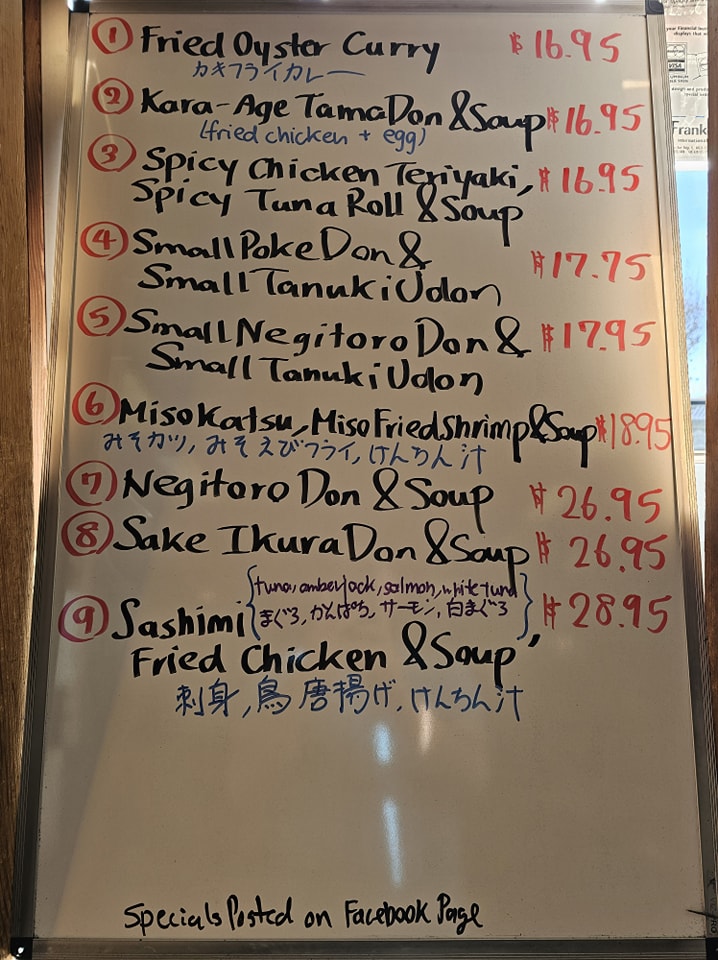 ① Fried Oyster Curry $16.95
カキフライカレー
② Kara-Age TamaDon & Soup $16.95
(fried chicken + egg)
③ Spicy Chicken Teriyaki, $16.95
Spicy Tuna Roll & Soup
④ Small Poke Don & $17.75
Small Tanuki Udon
⑤ Small Negitoro Don & $17.95
Small Tanuki Udon
⑥ Miso Katsu, Miso Fried Shrimp & Soup $18.95
みそカツ, みそえびフライ, けんちん汁
⑦ Negitoro Don & Soup $26.95
⑧ Sake Ikura Don & Soup $26.95
tuna, amberjack, salmon, white tuna
⑨ Sashimi { まぐろ, かんぱち, サーモン, 白まぐろ } $28.95
Fried Chicken & Soup
刺身, 鳥唐揚げ, けんちん汁
Specials Posted on Facebook Page
VISA
Frank